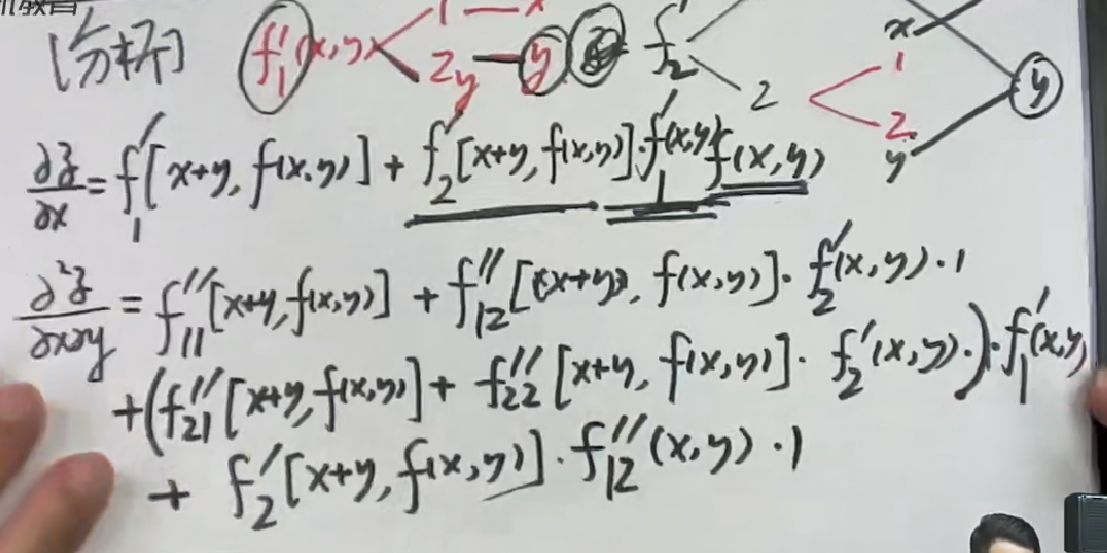 [分析] f₁'(x,y) 1 x 2 y y f₂' 2 x 1 2 y y
∂z/∂x = f₁'[x+y, f(x,y)] + f₂'[x+y, f(x,y)]·f₁'(x,y) f(x,y)
∂²z/∂x∂y = f₁₁''[x+y, f(x,y)] + f₁₂''[(x+y), f(x,y)]·f₂'(x,y)·1
+(f₂₁''[x+y, f(x,y)] + f₂₂''[x+y, f(x,y)]·f₂'(x,y)·)·f₁'(x,y)
+ f₂'[x+y, f(x,y)]·f₁₂''(x,y)·1